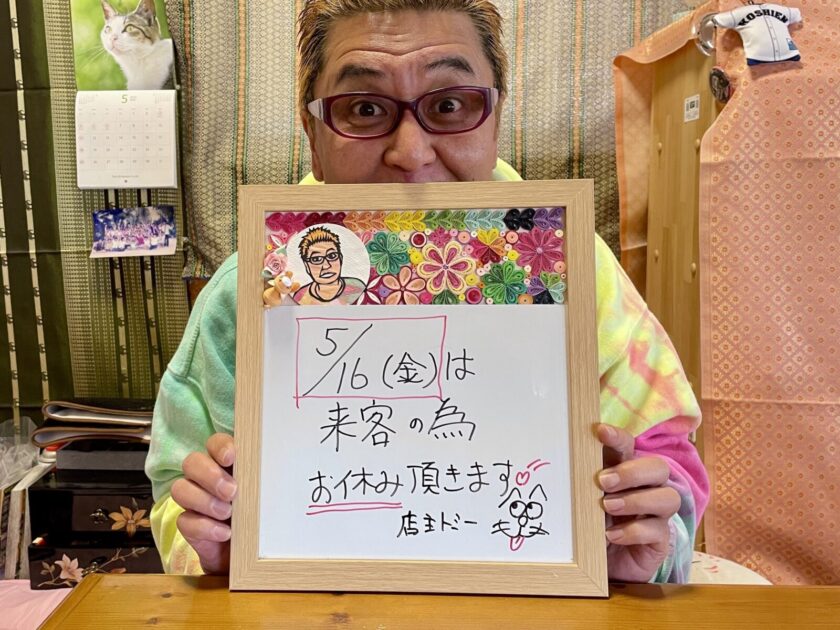 KOSHIEN
5
5/16(金)は
来客の為
お休み頂きます
店主トミー